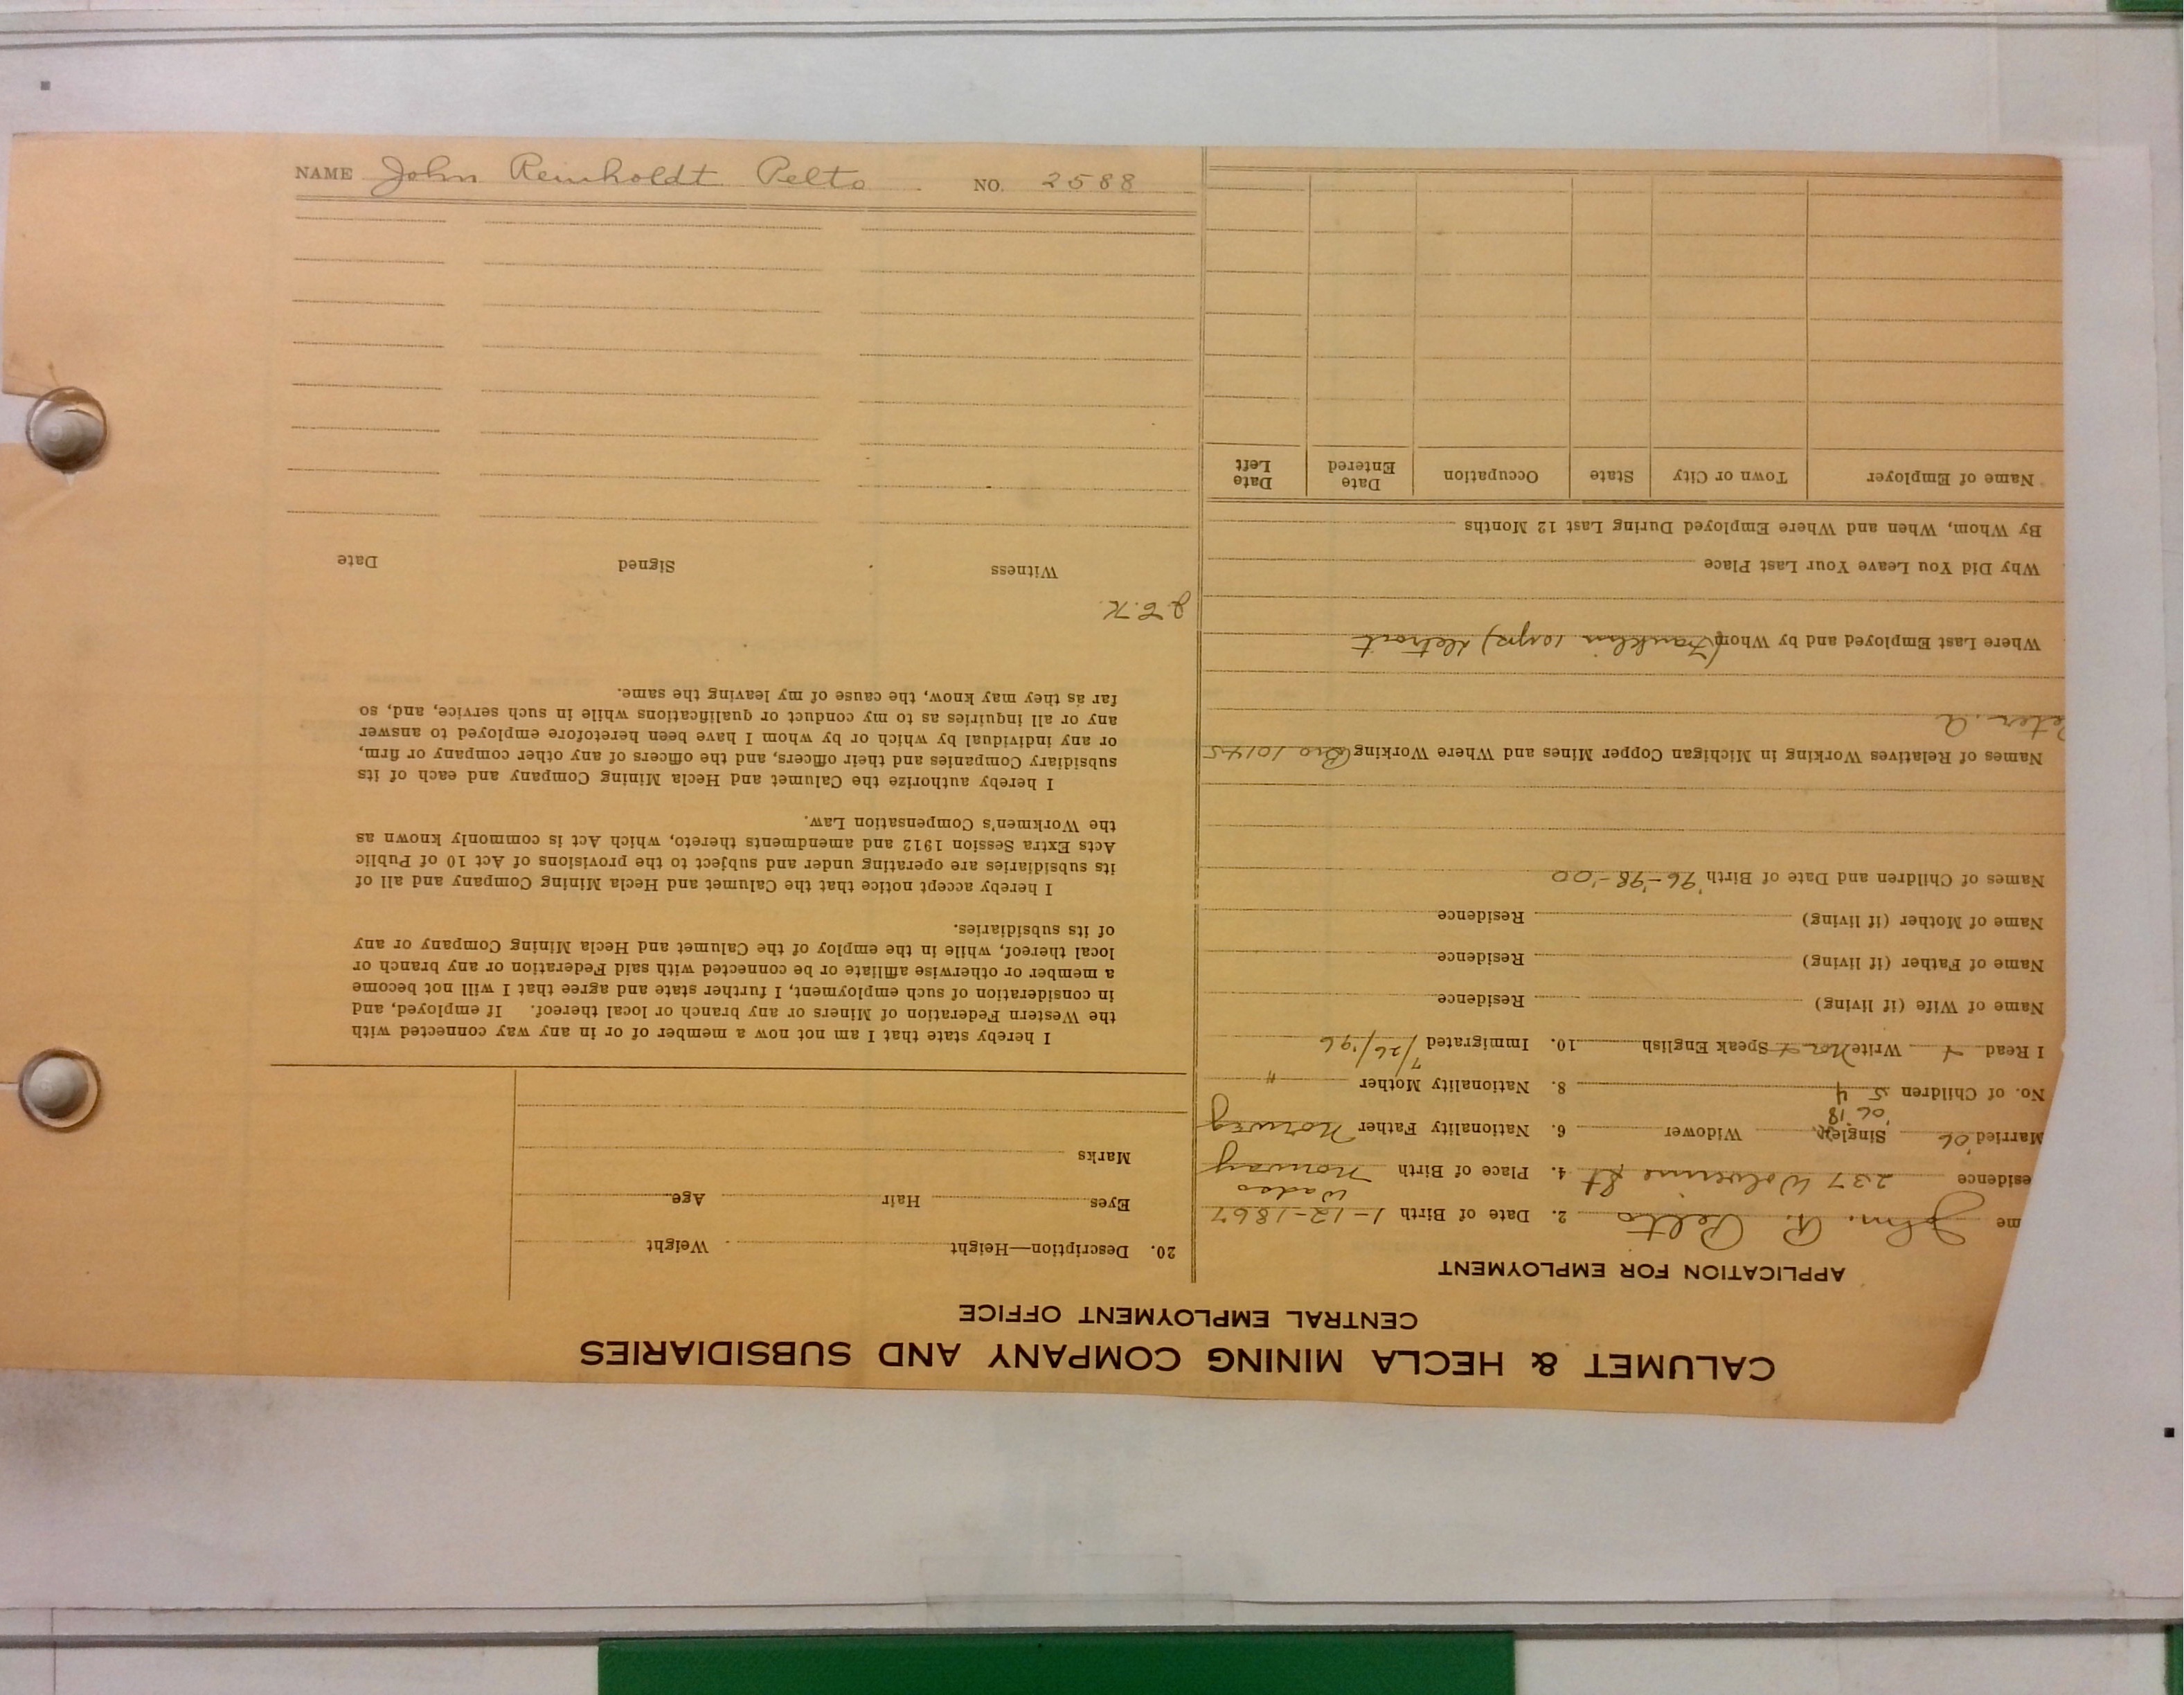 CALUMET & HECLA MINING COMPANY AND SUBSIDIARIES
CENTRAL EMPLOYMENT OFFICE
APPLICATION FOR EMPLOYMENT
me John. R. Pelto 2. Date of Birth 1-12-1867
Wadso
esidence 237 Wolverine St 4. Place of Birth Norway
Married '06 Single Widower 6. Nationality Father Norweg
'06 '18
No. of Children 5 4 8. Nationality Mother "
I Read Write Nor Speak English 10. Immigrated 7/26/'96
Name of Wife (if living) Residence
Name of Father (if living) Residence
Name of Mother (if living) Residence
Names of Children and Date of Birth '96-'98-'00
Names of Relatives Working in Michigan Copper Mines and Where Working Bro 10145
eter. A
Where Last Employed and by Whom (Franklin 10yrs) Detroit
Why Did You Leave Your Last Place
By Whom, When and Where Employed During Last 12 Months
Name of Employer Town or City State Occupation Date Entered Date Left
20. Description—Height Weight
Eyes Hair Age
Marks
I hereby state that I am not now a member of or in any way connected with
the Western Federation of Miners or any branch or local thereof. If employed, and
in consideration of such employment, I further state and agree that I will not become
a member or otherwise affiliate or be connected with said Federation or any branch or
local thereof, while in the employ of the Calumet and Hecla Mining Company or any
of its subsidiaries.
I hereby accept notice that the Calumet and Hecla Mining Company and all of
its subsidiaries are operating under and subject to the provisions of Act 10 of Public
Acts Extra Session 1912 and amendments thereto, which Act is commonly known as
the Workmen's Compensation Law.
I hereby authorize the Calumet and Hecla Mining Company and each of its
subsidiary Companies and their officers, and the officers of any other company or firm,
or any individual by which or by whom I have been heretofore employed to answer
any or all inquiries as to my conduct or qualifications while in such service, and, so
far as they may know, the cause of my leaving the same.
J.E.K.
Witness Signed Date
NAME John Reinholdt Pelto NO. 2588